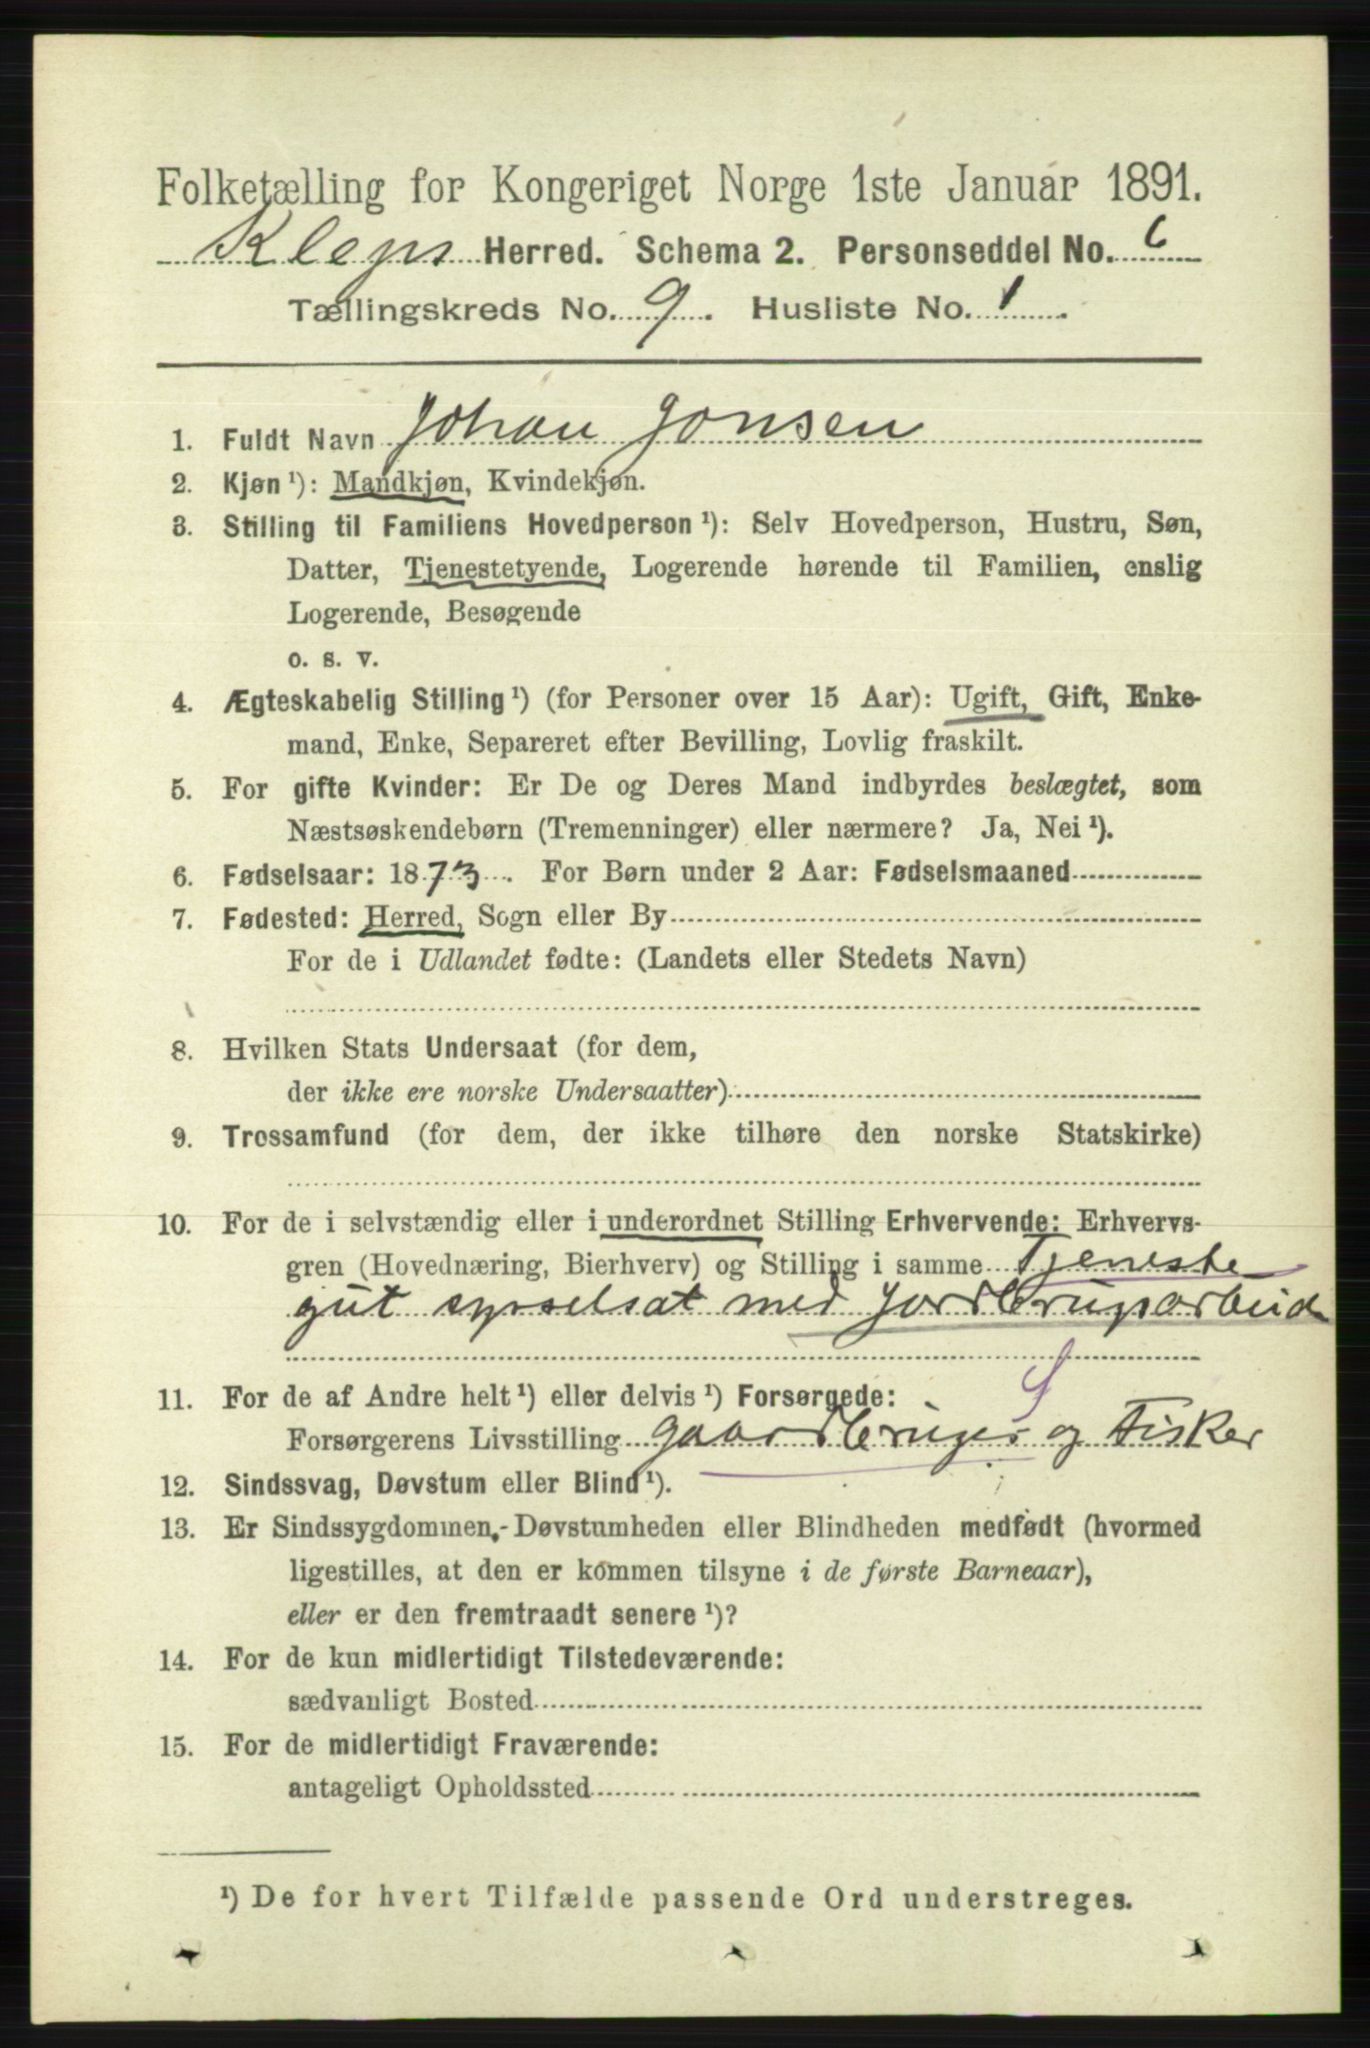 Folketælling for Kongeriget Norge 1ste Januar 1891.
Kleps Herred. Schema 2. Personseddel No. 6
Tællingskreds No. 9. Husliste No. 1.
1. Fuldt Navn Johan Jonsen
2. Kjøn ¹): Mandkjøn, Kvindekjøn.
3. Stilling til Familiens Hovedperson ¹): Selv Hovedperson, Hustru, Søn,
Datter, Tjenestetyende, Logerende hørende til Familien, enslig
Logerende, Besøgende
o. s. v.
4. Ægteskabelig Stilling ¹) (for Personer over 15 Aar): Ugift, Gift, Enke-
mand, Enke, Separeret efter Bevilling, Lovlig fraskilt.
5. For gifte Kvinder: Er De og Deres Mand indbyrdes beslægtet, som
Næstsøskendebørn (Tremenninger) eller nærmere? Ja, Nei ¹).
6. Fødselsaar: 1873. For Børn under 2 Aar: Fødselsmaaned
7. Fødested: Herred, Sogn eller By
For de i Udlandet fødte: (Landets eller Stedets Navn)
8. Hvilken Stats Undersaat (for dem,
der ikke ere norske Undersaatter)
9. Trossamfund (for dem, der ikke tilhøre den norske Statskirke)
10. For de i selvstændig eller i underordnet Stilling Erhvervende: Erhvervs-
gren (Hovednæring, Bierhverv) og Stilling i samme Tjeneste
gut sysselsat med jordbrugsarbeid
11. For de af Andre helt ¹) eller delvis ¹) Forsørgede:
Forsørgerens Livsstilling gaardbruger og Fisker
12. Sindssvag, Døvstum eller Blind ¹).
13. Er Sindssygdommen, Døvstumheden eller Blindheden medfødt (hvormed
ligestilles, at den er kommen tilsyne i de første Barneaar),
eller er den fremtraadt senere ¹)?
14. For de kun midlertidigt Tilstedeværende:
sædvanligt Bosted
15. For de midlertidigt Fraværende:
antageligt Opholdssted
¹) De for hvert Tilfælde passende Ord understreges.